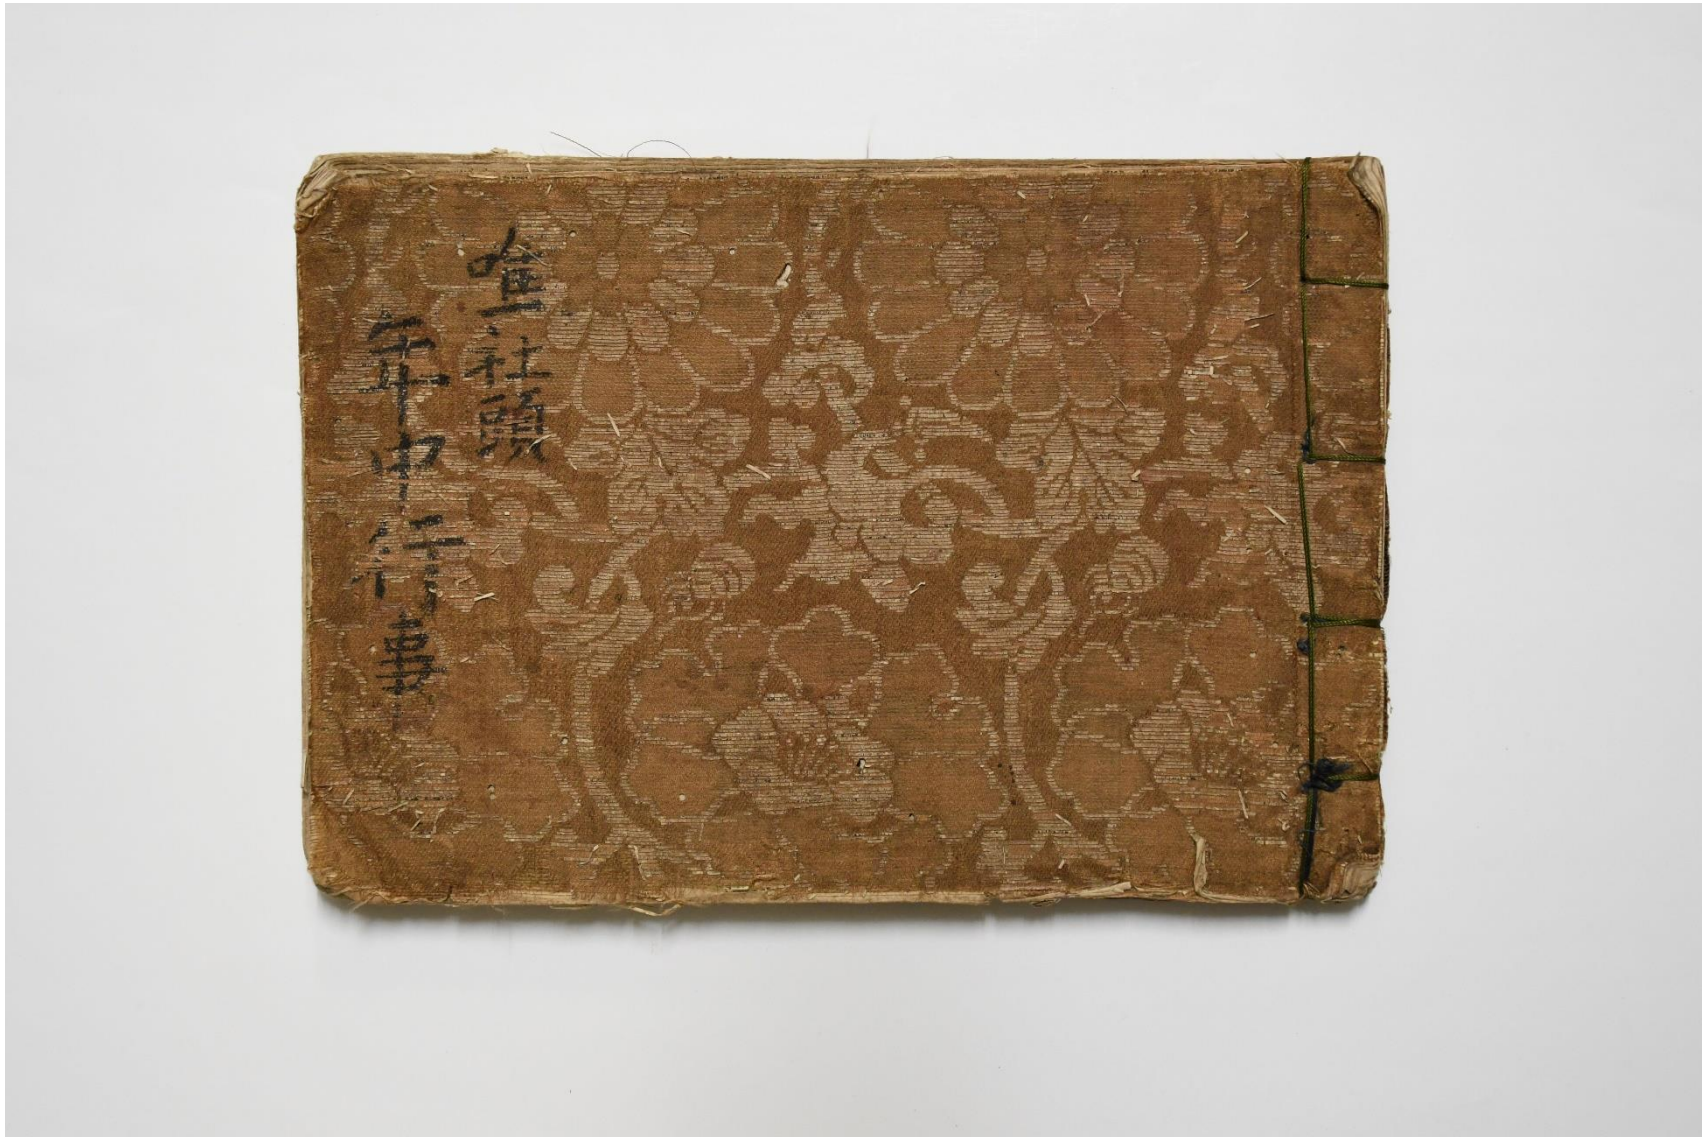 社頭
年中行事